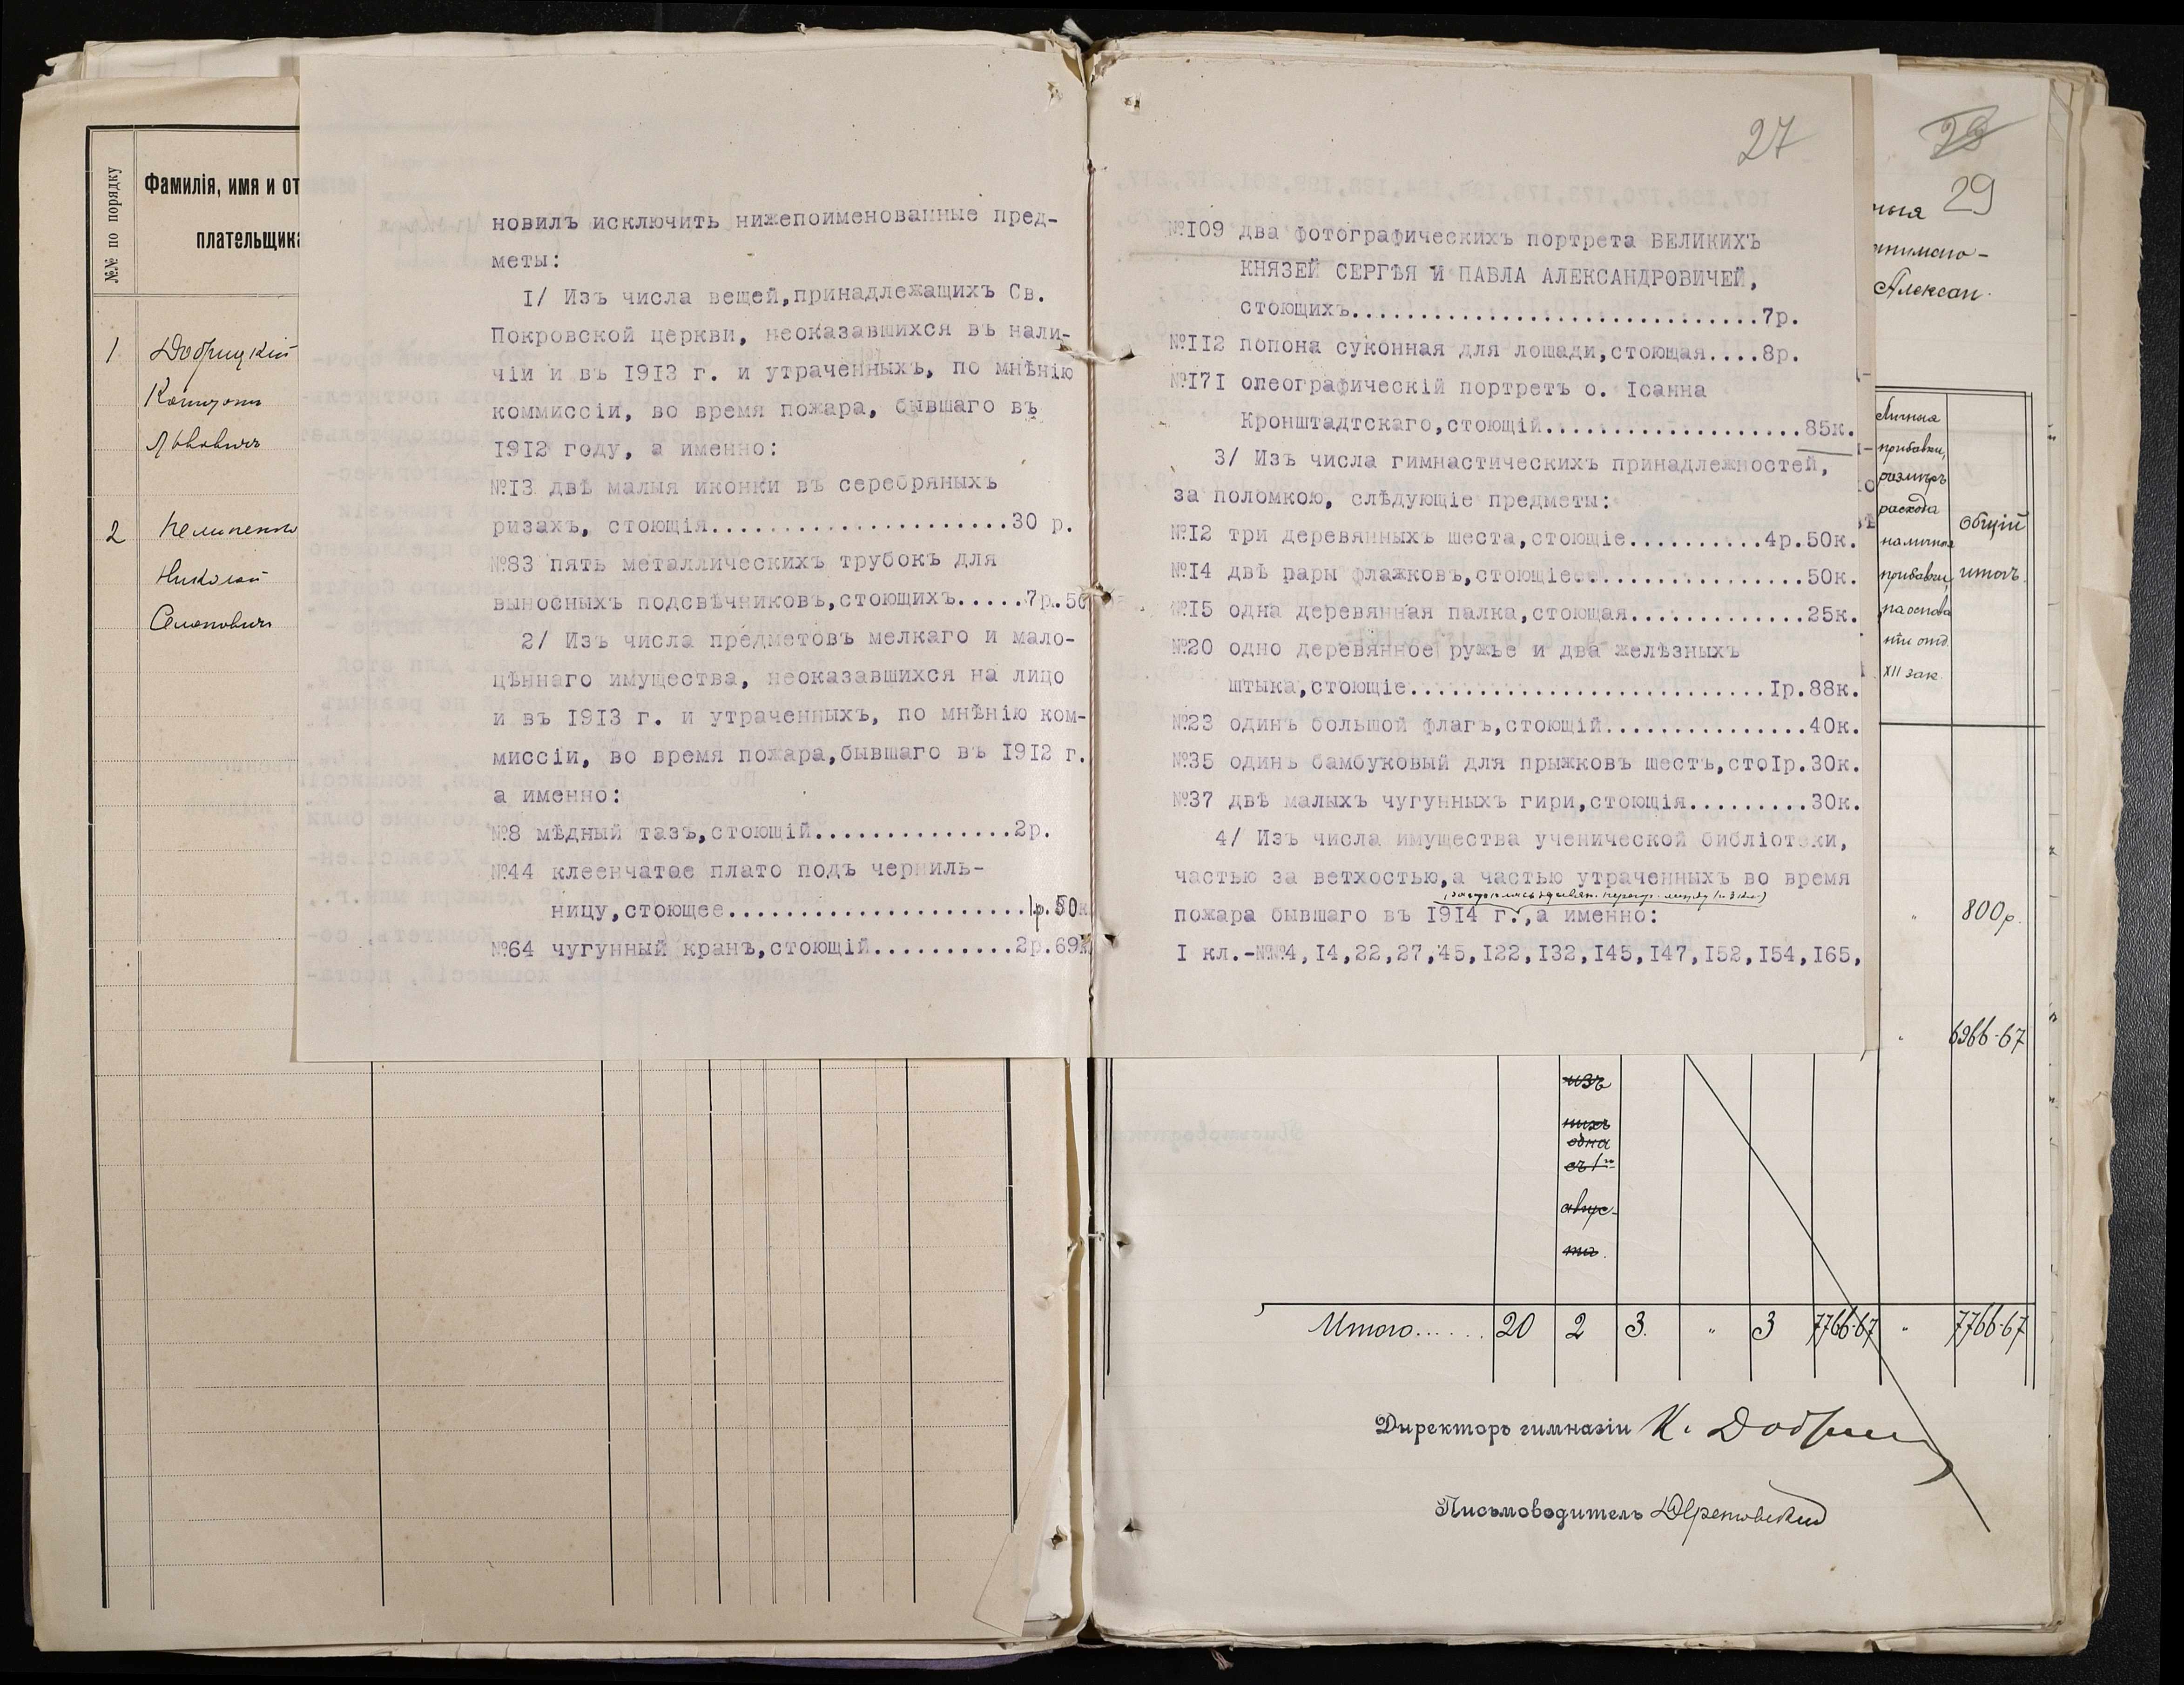 №№ по порядку
Фамилія, имя и от
плательщика
1 Добрицкій
Львовичъ
2
Николай
Семеновичъ
новилъ исключить нижепоименованные пред-
меты:
I/ Изъ числа вещей,принадлежащихъ Св.
Покровской церкви, неоказавшихся въ нали-
чіи и въ 1913 г. и утраченныхъ, по мнѣнію
коммиссіи, во время пожара, бывшаго въ
1912 году, а именно:
№13 двѣ малыя иконки въ серебряныхъ
ризахъ, стоющія......................30 р.
№83 пять металлическихъ трубокъ для
выносныхъ подсвѣчниковъ,стоющихъ.....7р.50
2/ Изъ числа предметовъ мелкаго и мало-
цѣннаго имущества, неоказавшихся на лицо
и въ 1913 г. и утраченныхъ, по мнѣнію ком-
миссіи, во время пожара,бывшаго въ 1912 г.
а именно:
№8 мѣдный тазъ,стоющій...............2р.
№44 клеенчатое плато подъ черниль-
ницу,стоющее.......................1р.50к
№64 чугунный кранъ,стоющій...........2р.69к
27
№109 два фотографическихъ портрета ВЕЛИКИХЪ
КНЯЗЕЙ СЕРГѢЯ И ПАВЛА АЛЕКСАНДРОВИЧЕЙ,
стоющихъ...............................7р.
№112 попона суконная для лошади,стоющая....8р.
№171 олеографическій портретъ о. Іоанна
Кронштадтскаго,стоющій...................85к.
3/ Изъ числа гимнастическихъ принадлежностей,
за поломкою, слѣдующіе предметы:
№12 три деревянныхъ шеста,стоющіе..........4р.50к.
№14 двѣ рары флажковъ,стоющіе.................50к.
№15 одна деревянная палка,стоющая.............25к.
№20 одно деревянное ружье и два желѣзныхъ
штыка,стоющіе...........................1р.88к.
№23 одинъ большой флагъ,стоющій...............40к.
№35 одинъ бамбуковый для прыжковъ шестъ,сто1р.30к.
№37 двѣ малыхъ чугунныхъ гири,стоющія.........30к.
4/ Изъ числа имущества ученической библіотеки,
частью за ветхостью,а частью утраченныхъ во время
пожара бывшаго въ 1914 г.,а именно:
I кл.-№№4,14,22,27,45,122,132,145,147,152,154,165,
29
29
Алексан.
Личныя
прибавки,
размѣръ
расхода
на личныя
прибавки,
на основа
ніи отд.
XII зак.
Общій
итогъ.
" 800р.
" 6966-67
изъ
нихъ
одна
съ 1го
авгус-
та.
Итого...... 20 2 3. " 3 7766-67 " 7766-67
Директоръ гимназіи К. Добриц
Письмоводитель